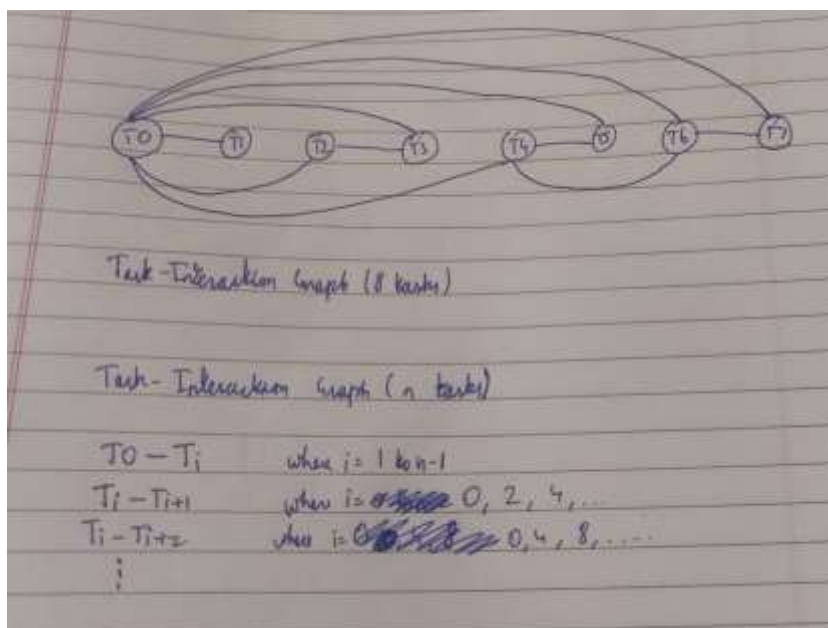 T0 T1 T2 T3 T4 T5 T6 T7
Task-Interaction Graph (8 tasks)
Task-Interaction Graph (n tasks)
T0 – Ti where i = 1 to n-1
Ti – Ti+1 where i = 0, 2, 4, ...
Ti – Ti+2 where i = 0, 4, 8, .....
⋮